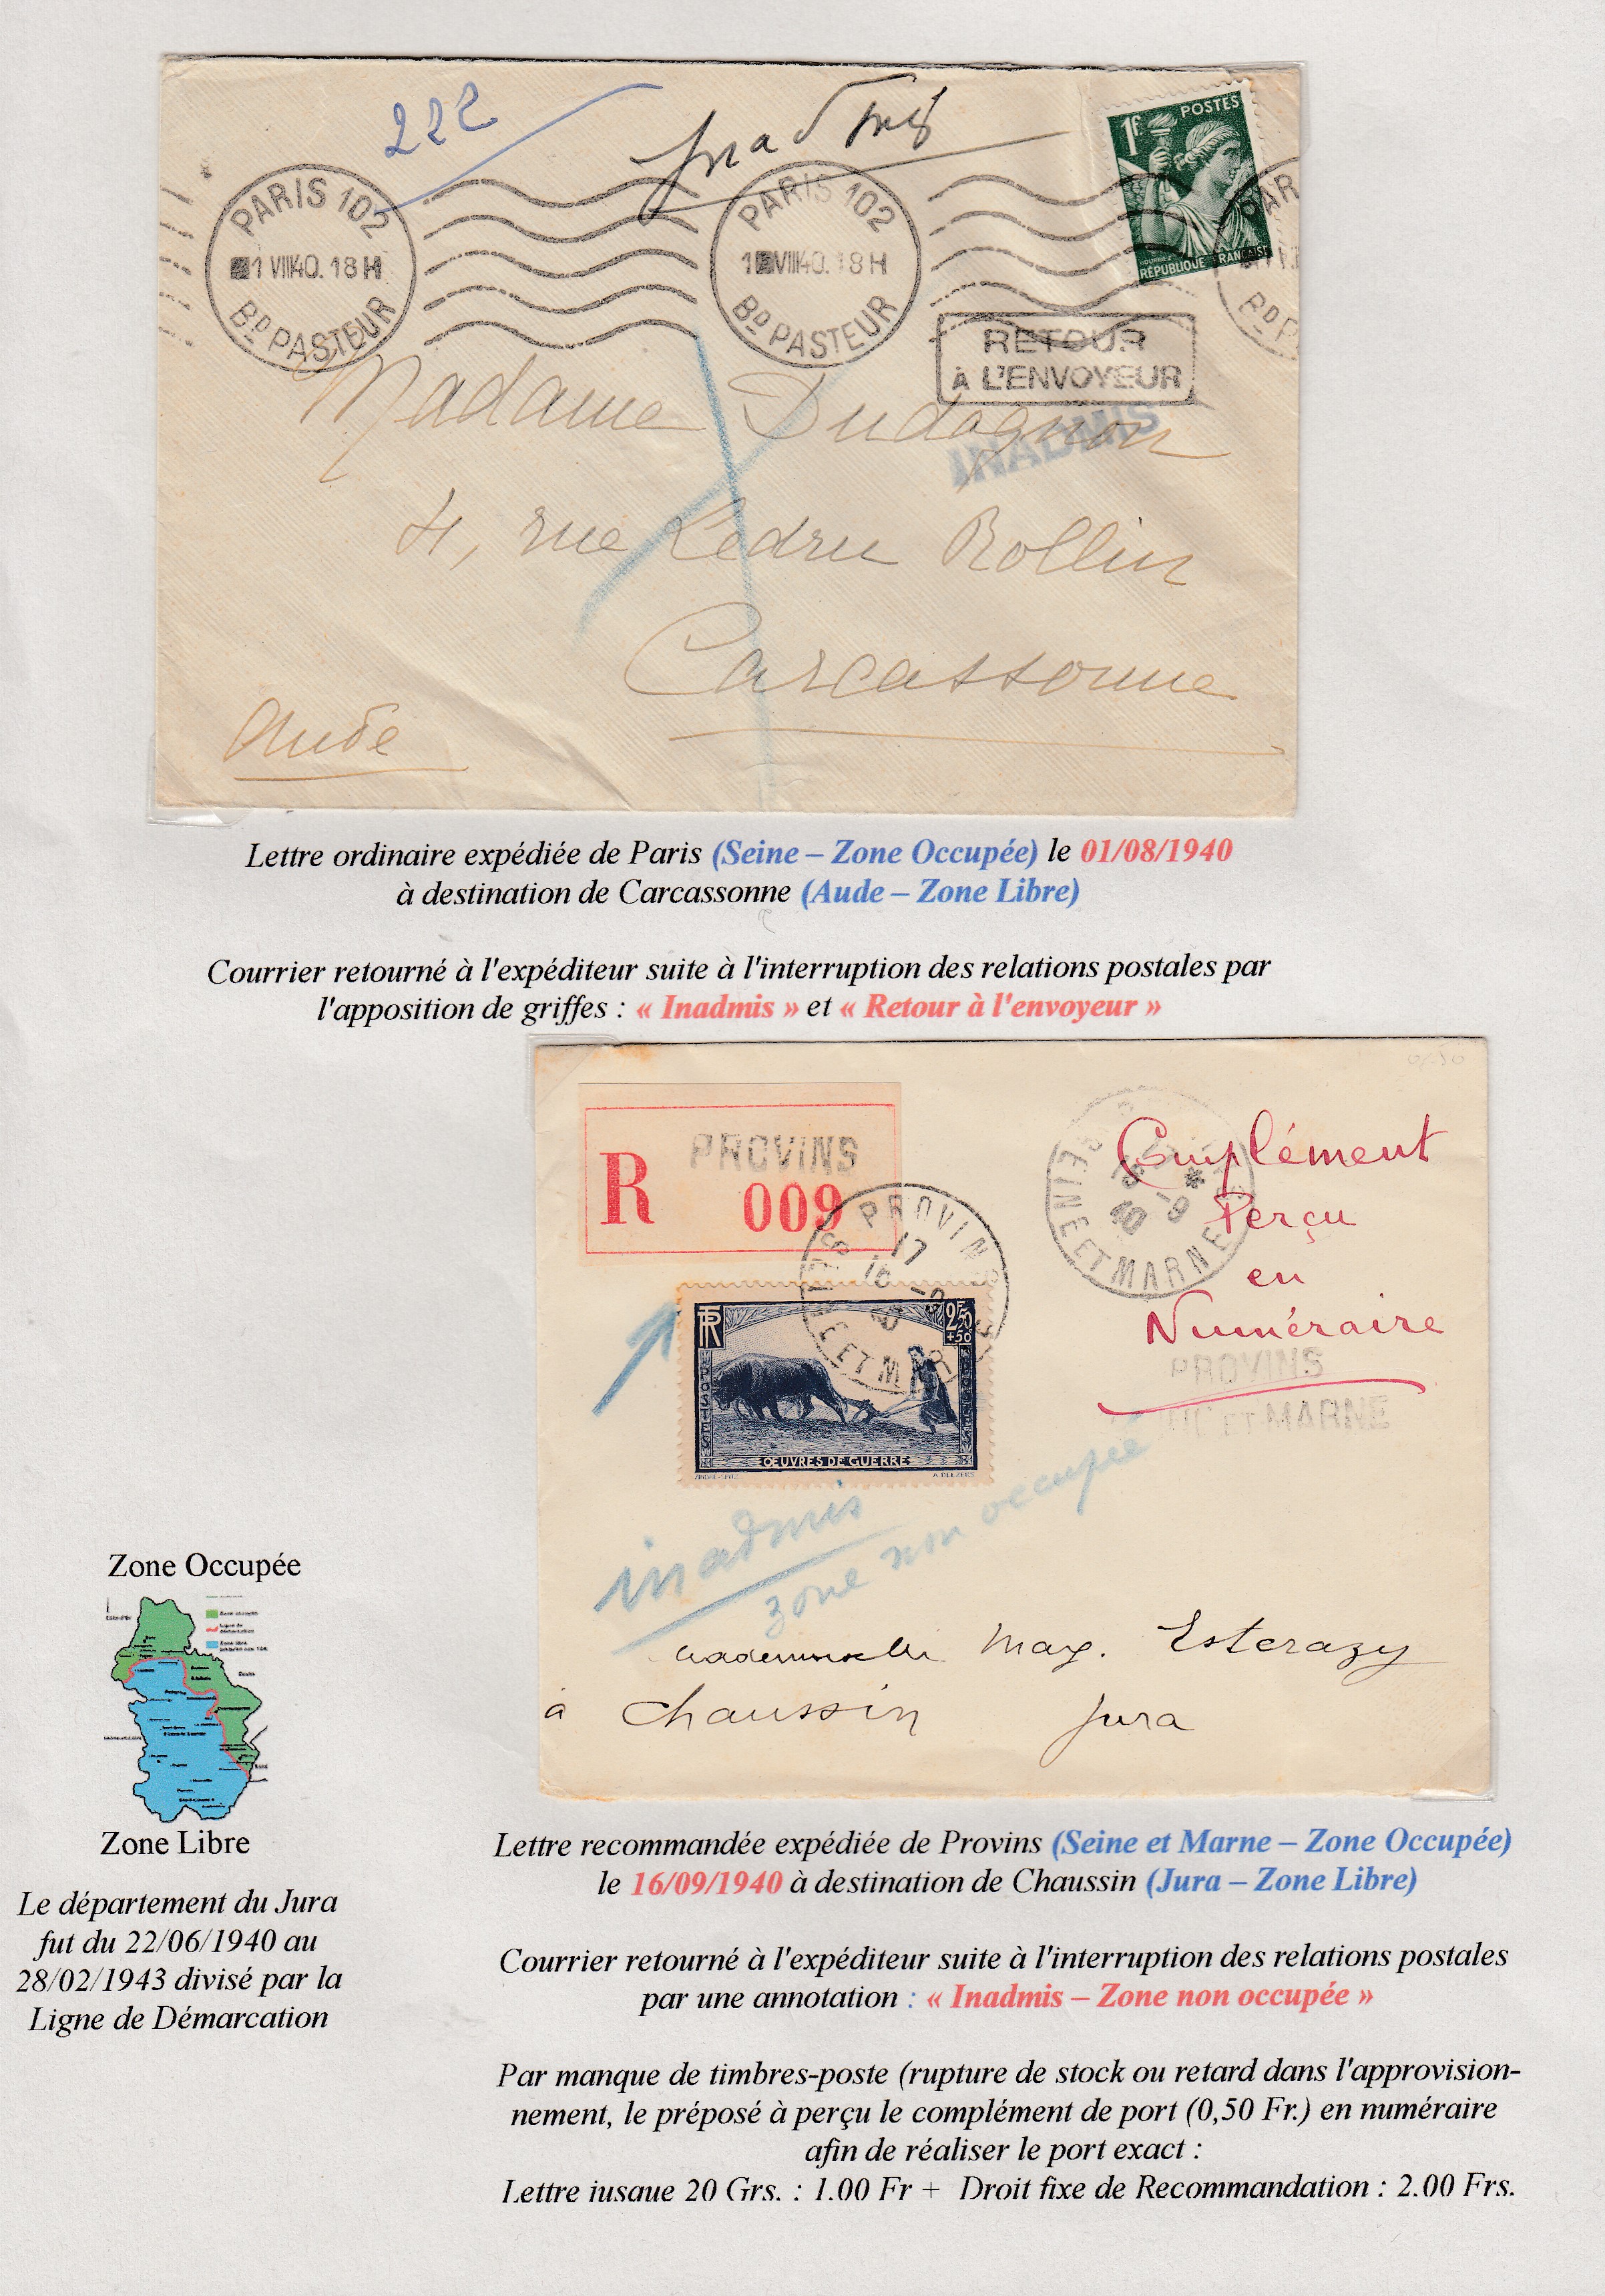 222
Inadmis
POSTES
1F
RÉPUBLIQUE FRANÇAISE
PARIS 102
1 VIII 40. 18H
BD PASTEUR
PARIS 102
1 VIII 40. 18H
BD PASTEUR
PAR
BD P
RETOUR
À L'ENVOYEUR
INADMIS
Madame Dudognon
41, rue Ledru Rollin
Carcassonne
Aude
Lettre ordinaire expédiée de Paris (Seine – Zone Occupée) le 01/08/1940
à destination de Carcassonne (Aude – Zone Libre)
Courrier retourné à l'expéditeur suite à l'interruption des relations postales par
l'apposition de griffes : « Inadmis » et « Retour à l'envoyeur »
R PROVINS
009
PROVINS
17
16 -9
ET M
SEINE ET MARNE
Complément
Perçu
en
Numéraire
PROVINS
ET MARNE
RF
2F50
+50
POSTES
OEUVRES DE GUERRE
A. DELZERS
inadmis
zone non occupée
Mademoiselle Mag. Esterazy
à Chaussin Jura
Zone Occupée
Zone Libre
Le département du Jura
fut du 22/06/1940 au
28/02/1943 divisé par la
Ligne de Démarcation
Lettre recommandée expédiée de Provins (Seine et Marne – Zone Occupée)
le 16/09/1940 à destination de Chaussin (Jura – Zone Libre)
Courrier retourné à l'expéditeur suite à l'interruption des relations postales
par une annotation : « Inadmis – Zone non occupée »
Par manque de timbres-poste (rupture de stock ou retard dans l'approvision-
nement, le préposé à perçu le complément de port (0,50 Fr.) en numéraire
afin de réaliser le port exact :
Lettre jusque 20 Grs. : 1.00 Fr + Droit fixe de Recommandation : 2.00 Frs.